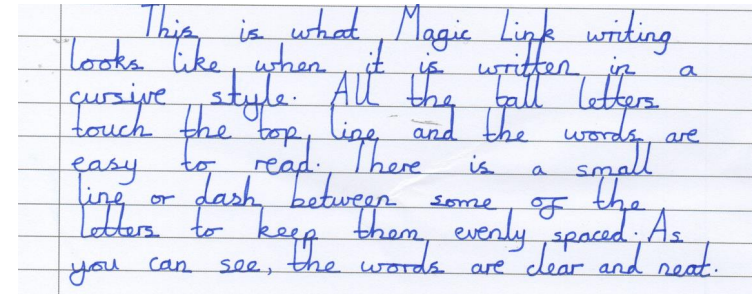 This is what Magic Link writing
looks like when it is written in a
cursive style. All the tall letters
touch the top line and the words are
easy to read. There is a small
line or dash between some of the
letters to keep them evenly spaced. As
you can see, the words are clear and neat.